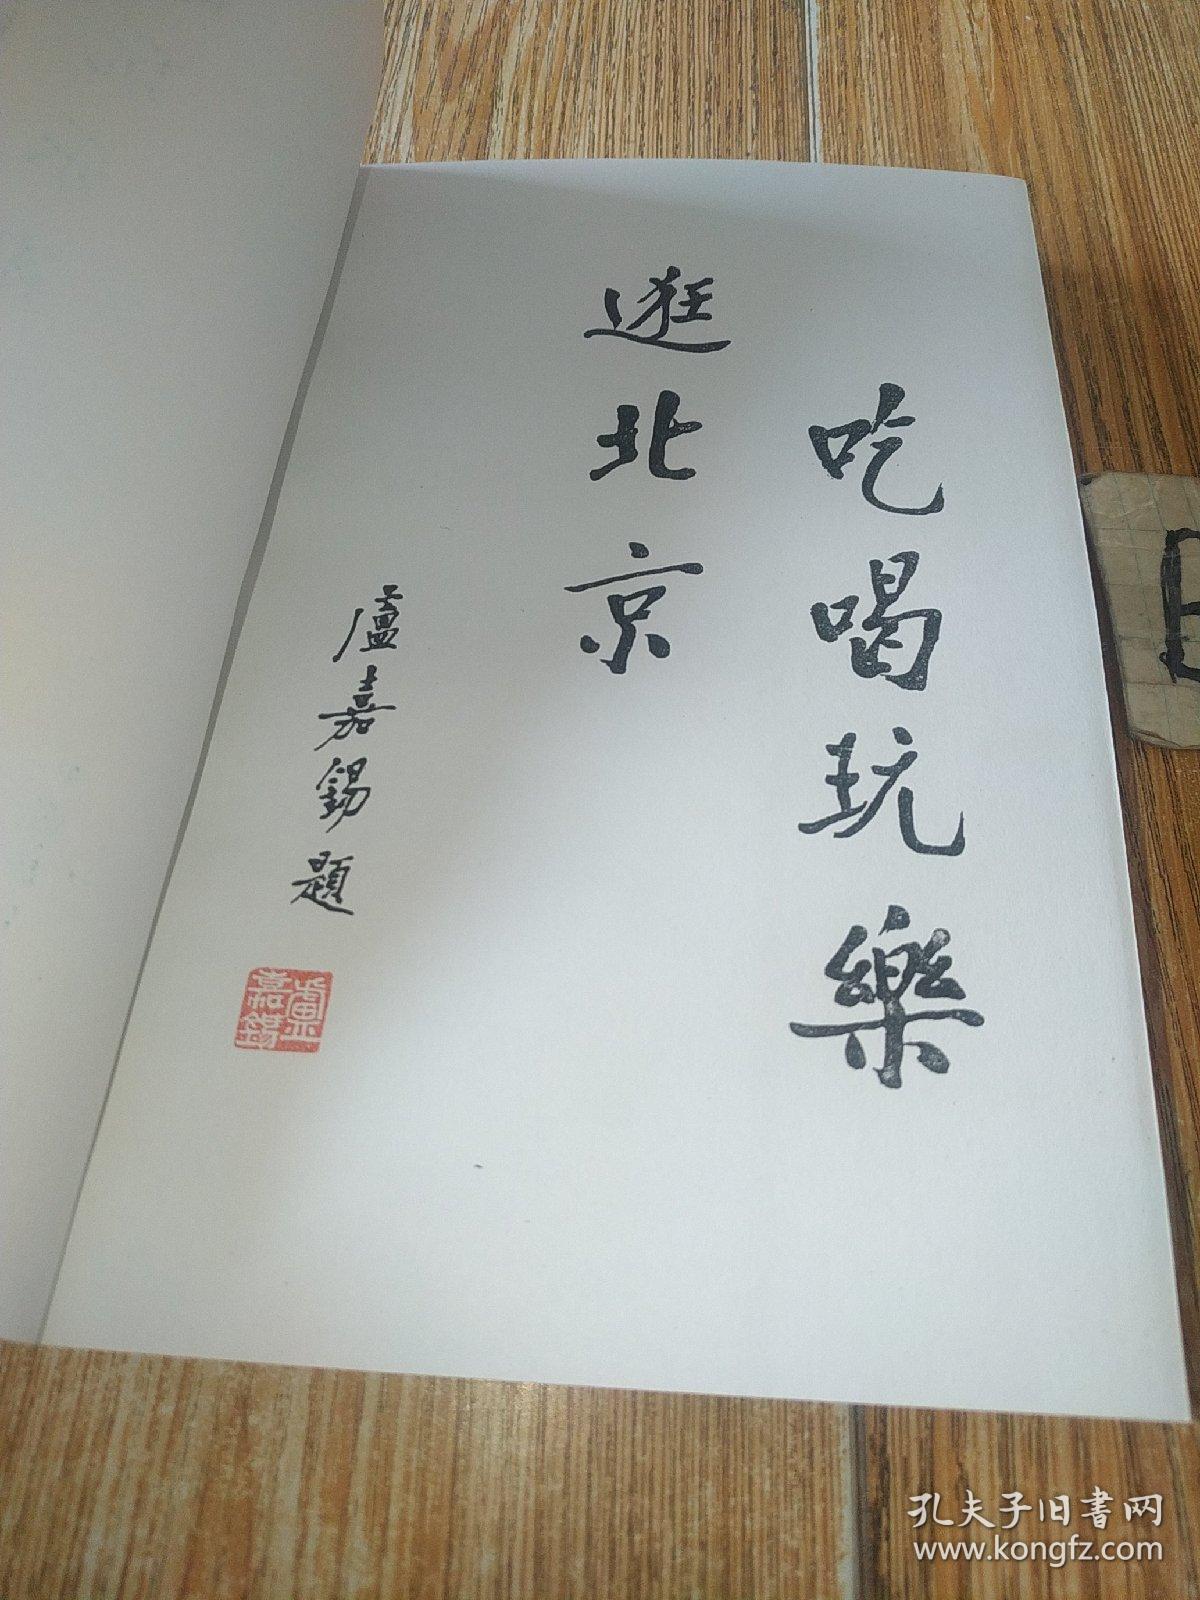 吃喝玩樂
逛北京
盧嘉錫題
盧嘉錫
孔夫子旧書网
www.kongfz.com